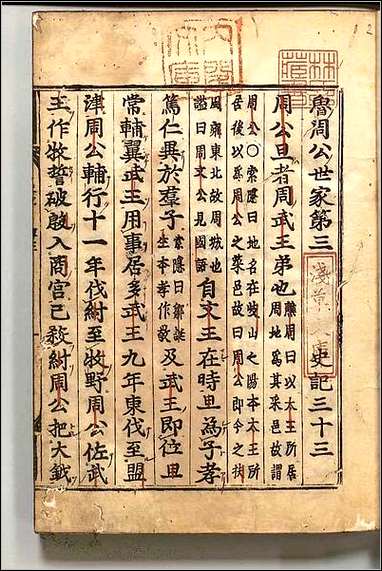 魯周公世家第三 史記三十三
周公旦者周武王弟也
譙周曰以太王所居
周地爲其采邑故謂
周公〇索隱曰地名在岐山之陽本太王所
居後以爲周公之菜邑故曰周公即今之扶
風雍東北故周城也
謚曰周文公見國語
自文王在時旦為子孝
篤仁異於羣子
索隱曰鄒誕
生本孝作敬
及武王即位旦
常輔翼武王用事居多武王九年東伐至盟
津周公輔行十一年伐紂至牧野周公佐武
王作牧誓破殷入商宮已殺紂周公把大鉞
林氏藏書
淺草文庫